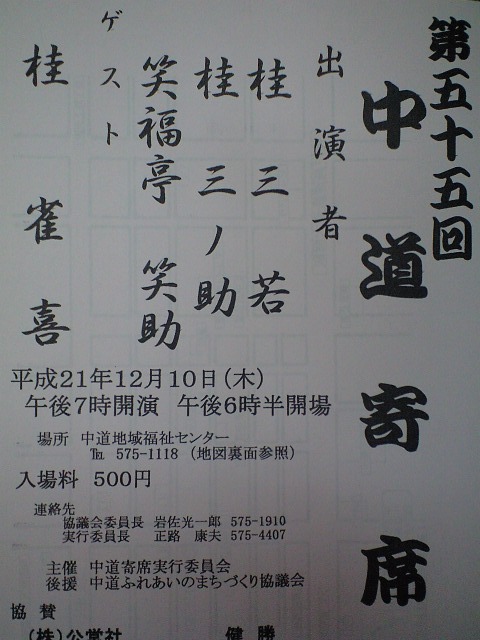 第五十五回
中道寄席
出演者
桂 三若
桂 三ノ助
笑福亭 笑助
ゲスト
桂 雀喜
平成21年12月10日(木)
午後7時開演 午後6時半開場
場所 中道地域福祉センター
℡ 575-1118 (地図裏面参照)
入場料 500円
連絡先
協議会委員長 岩佐光一郎 575-1910
実行委員長 正路 康夫 575-4407
主催 中道寄席実行委員会
後援 中道ふれあいのまちづくり協議会
協賛
(株)公営社 健勝